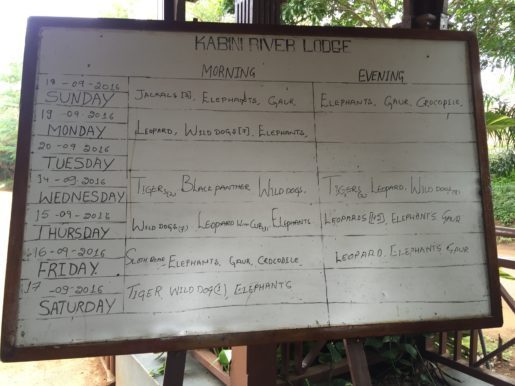 KABINI RIVER LODGE
MORNING EVENING
18-09-2016
SUNDAY JACKALS ELEPHANTS, GAUR ELEPHANTS, GAUR, CROCODILE.
19-09-2016
MONDAY LEOPARD, WILD DOGS ELEPHANTS,
20-09-2016
TUESDAY
14-09-2016
WEDNESDAY TIGERS BLACK PANTHER WILD DOGS TIGERS LEOPARD, WILD DOGS
15-09-2016
THURSDAY WILD DOGS LEOPARD WITH CUB ELEPHANTS LEOPARDS ELEPHANTS GAUR
16-09-2016
FRIDAY SLOTH BEAR ELEPHANTS, GAUR, CROCODILE LEOPARD, ELEPHANTS GAUR
17-09-2016
SATURDAY TIGER WILD DOG ELEPHANTS